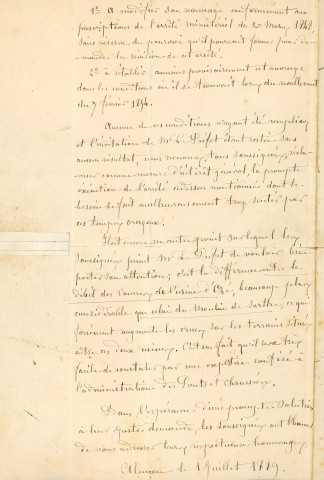 1º A modifier son barrage conformément aux
prescriptions de l'arrêté ministériel du 20 mars 1868,
sans réserve du pourvoi qu'il pourrait former pour de-
mander la révision de cet arrêté.
2º à rétablir au moins provisoirement cet ouvrage
dans les conditions où il se trouvait lors du récolement
du 7 février
Aucune de ces conditions n'ayant été remplies
et l'invitation de Mr le Préfet étant restée sans
aucun résultat, nous venons, tous soussignés, récla-
mer comme mesure d'intérêt général, la prompte
exécution de l'arrêté ci-dessus mentionné dont le
besoin se fait malheureusement trop sentir par
ces temps orageux.
Il est encore un autre point sur lequel les
soussignés prient Mr le Préfet de vouloir bien
porter son attention; c'est la différence entre le
débit des vannes de l'usine d'Ozé, beaucoup plus
considérable que celui du Moulin de Sarthe, ce qui
forcément augmente les crues sur les terrains situés
entre ces deux usines. C'est un fait qu'il sera très
facile de constater par une expertise confiée à
l'administration des Ponts et chaussées.
Dans l'espérance d'une prompte solution
à leur juste demande, les soussignés ont l'honneur
de vous adresser leurs respectueux hommages
Alençon le 1 Juillet 1889.